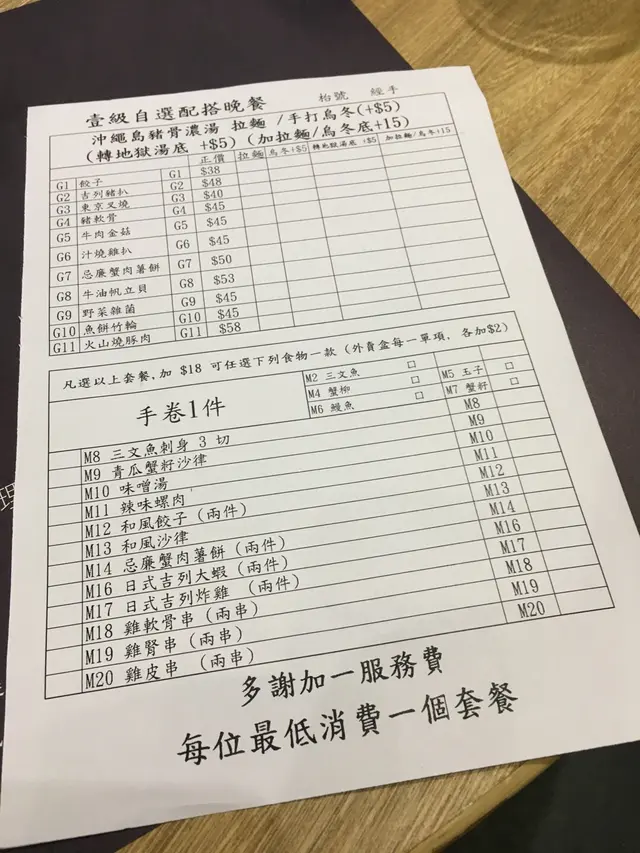 壹級自選配搭晚餐 枱號 經手
沖繩島豬骨濃湯 拉麵 /手打烏冬(+$5)
(轉地獄湯底 +$5) (加拉麵/烏冬底+15)
正價 拉麵 烏冬+$5 轉地獄湯底 +$5 加拉麵/烏冬+15
G1 餃子 G1 $38
G2 吉列豬扒 G2 $48
G3 東京叉燒 G3 $40
G4 豬軟骨 G4 $45
G5 牛肉金菇 G5 $45
G6 汁燒雞扒 G6 $45
G7 忌廉蟹肉薯餅 G7 $50
G8 牛油帆立貝 G8 $53
G9 野菜雜菌 G9 $45
G10 魚餅竹輪 G10 $45
G11 火山燒豚肉 G11 $58
凡選以上套餐,加 $18 可任選下列食物一款 (外賣盒每一單項, 各加$2)
手卷1件
M2 三文魚 口
M4 蟹柳 口 M5 玉子 口
M6 鰻魚 口 M7 蟹籽 口
M8 三文魚刺身 3 切 M8
M9 青瓜蟹籽沙律 M9
M10 味噌湯 M10
M11 辣味螺肉 M11
M12 和風餃子 (兩件) M12
M13 和風沙律 M13
M14 忌廉蟹肉薯餅 (兩件) M14
M16 日式吉列大蝦 (兩件) M16
M17 日式吉列炸雞 (兩件) M17
M18 雞軟骨串 (兩串) M18
M19 雞腎串 (兩串) M19
M20 雞皮串 (兩串) M20
多謝加一服務費
每位最低消費一個套餐
理